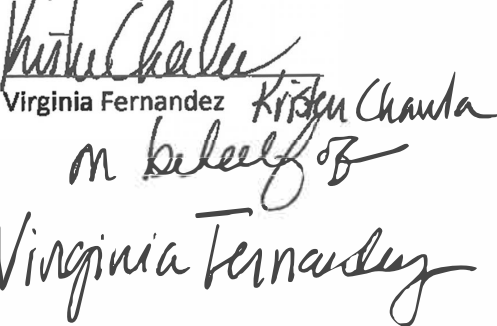 Virginia Fernandez Kristen Chawla
on behalf of
Virginia Fernandez